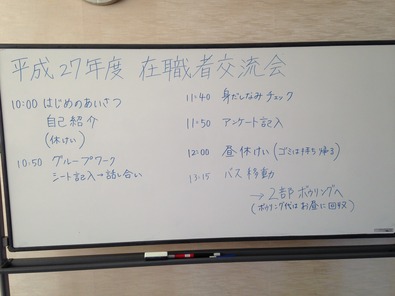 平成27年度 在職者交流会
10:00 はじめのあいさつ
自己紹介
(休けい)
10:50 グループワーク
シート記入→話し合い
11:40 身だしなみチェック
11:50 アンケート記入
12:00 昼休けい(ゴミは持ち帰る)
13:15 バス移動
→2部 ボウリングへ
(ボウリング代はお昼に回収)